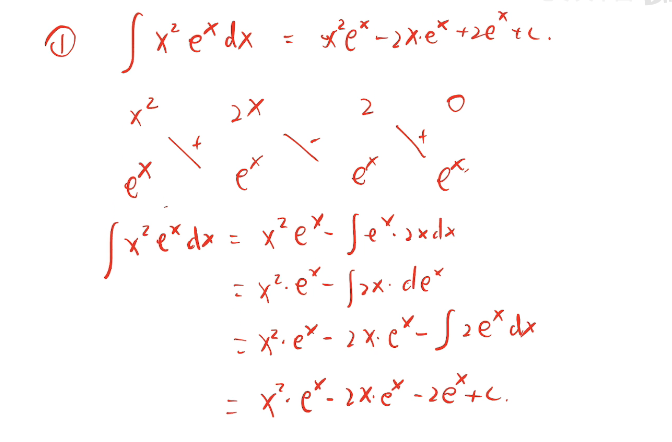 ① ∫ x² eˣ dx = x²eˣ - 2x·eˣ + 2eˣ + c.
x² 2x 2 0
+ - +
eˣ eˣ eˣ eˣ
∫ x² eˣ dx = x² eˣ - ∫ eˣ · 2x dx
= x² · eˣ - ∫ 2x · deˣ
= x² · eˣ - 2x · eˣ - ∫ 2eˣ dx
= x² · eˣ - 2x · eˣ - 2eˣ + c.